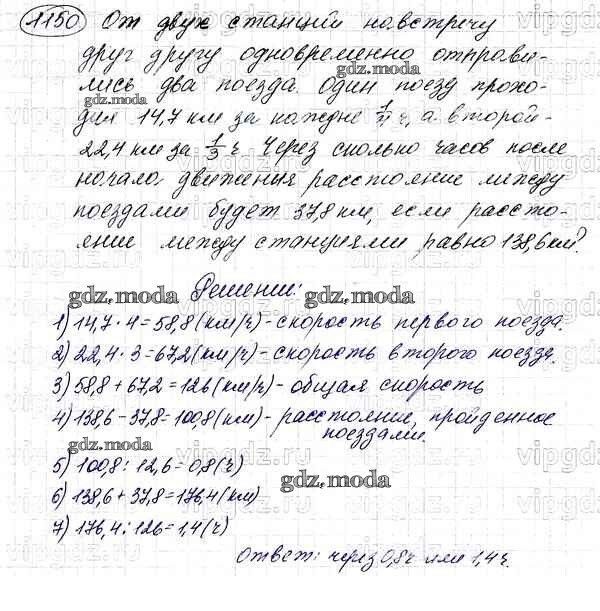 1150 От двух станций навстречу
друг другу одновременно отправи-
лись два поезда. Один поезд прохо-
дил 14,7 км за каждые 1/4 ч, а второй -
22,4 км за 1/3 ч. Через сколько часов после
начала движения расстояние между
поездами будет 37,8 км, если рассто-
яние между станциями равно 138,6 км?
gdz.moda Решение: gdz.moda
1) 14,7 · 4 = 58,8 (км/ч) - скорость первого поезда.
2) 22,4 · 3 = 67,2 (км/ч) - скорость второго поезда.
3) 58,8 + 67,2 = 126 (км/ч) - общая скорость
4) 138,6 - 37,8 = 100,8 (км) - расстояние, пройденное
поездами.
gdz.moda
5) 100,8 : 12,6 = 0,8 (ч)
6) 138,6 + 37,8 = 176,4 (км)
gdz.moda
7) 176,4 : 126 = 1,4 (ч)
Ответ: через 0,8 ч или 1,4 ч.